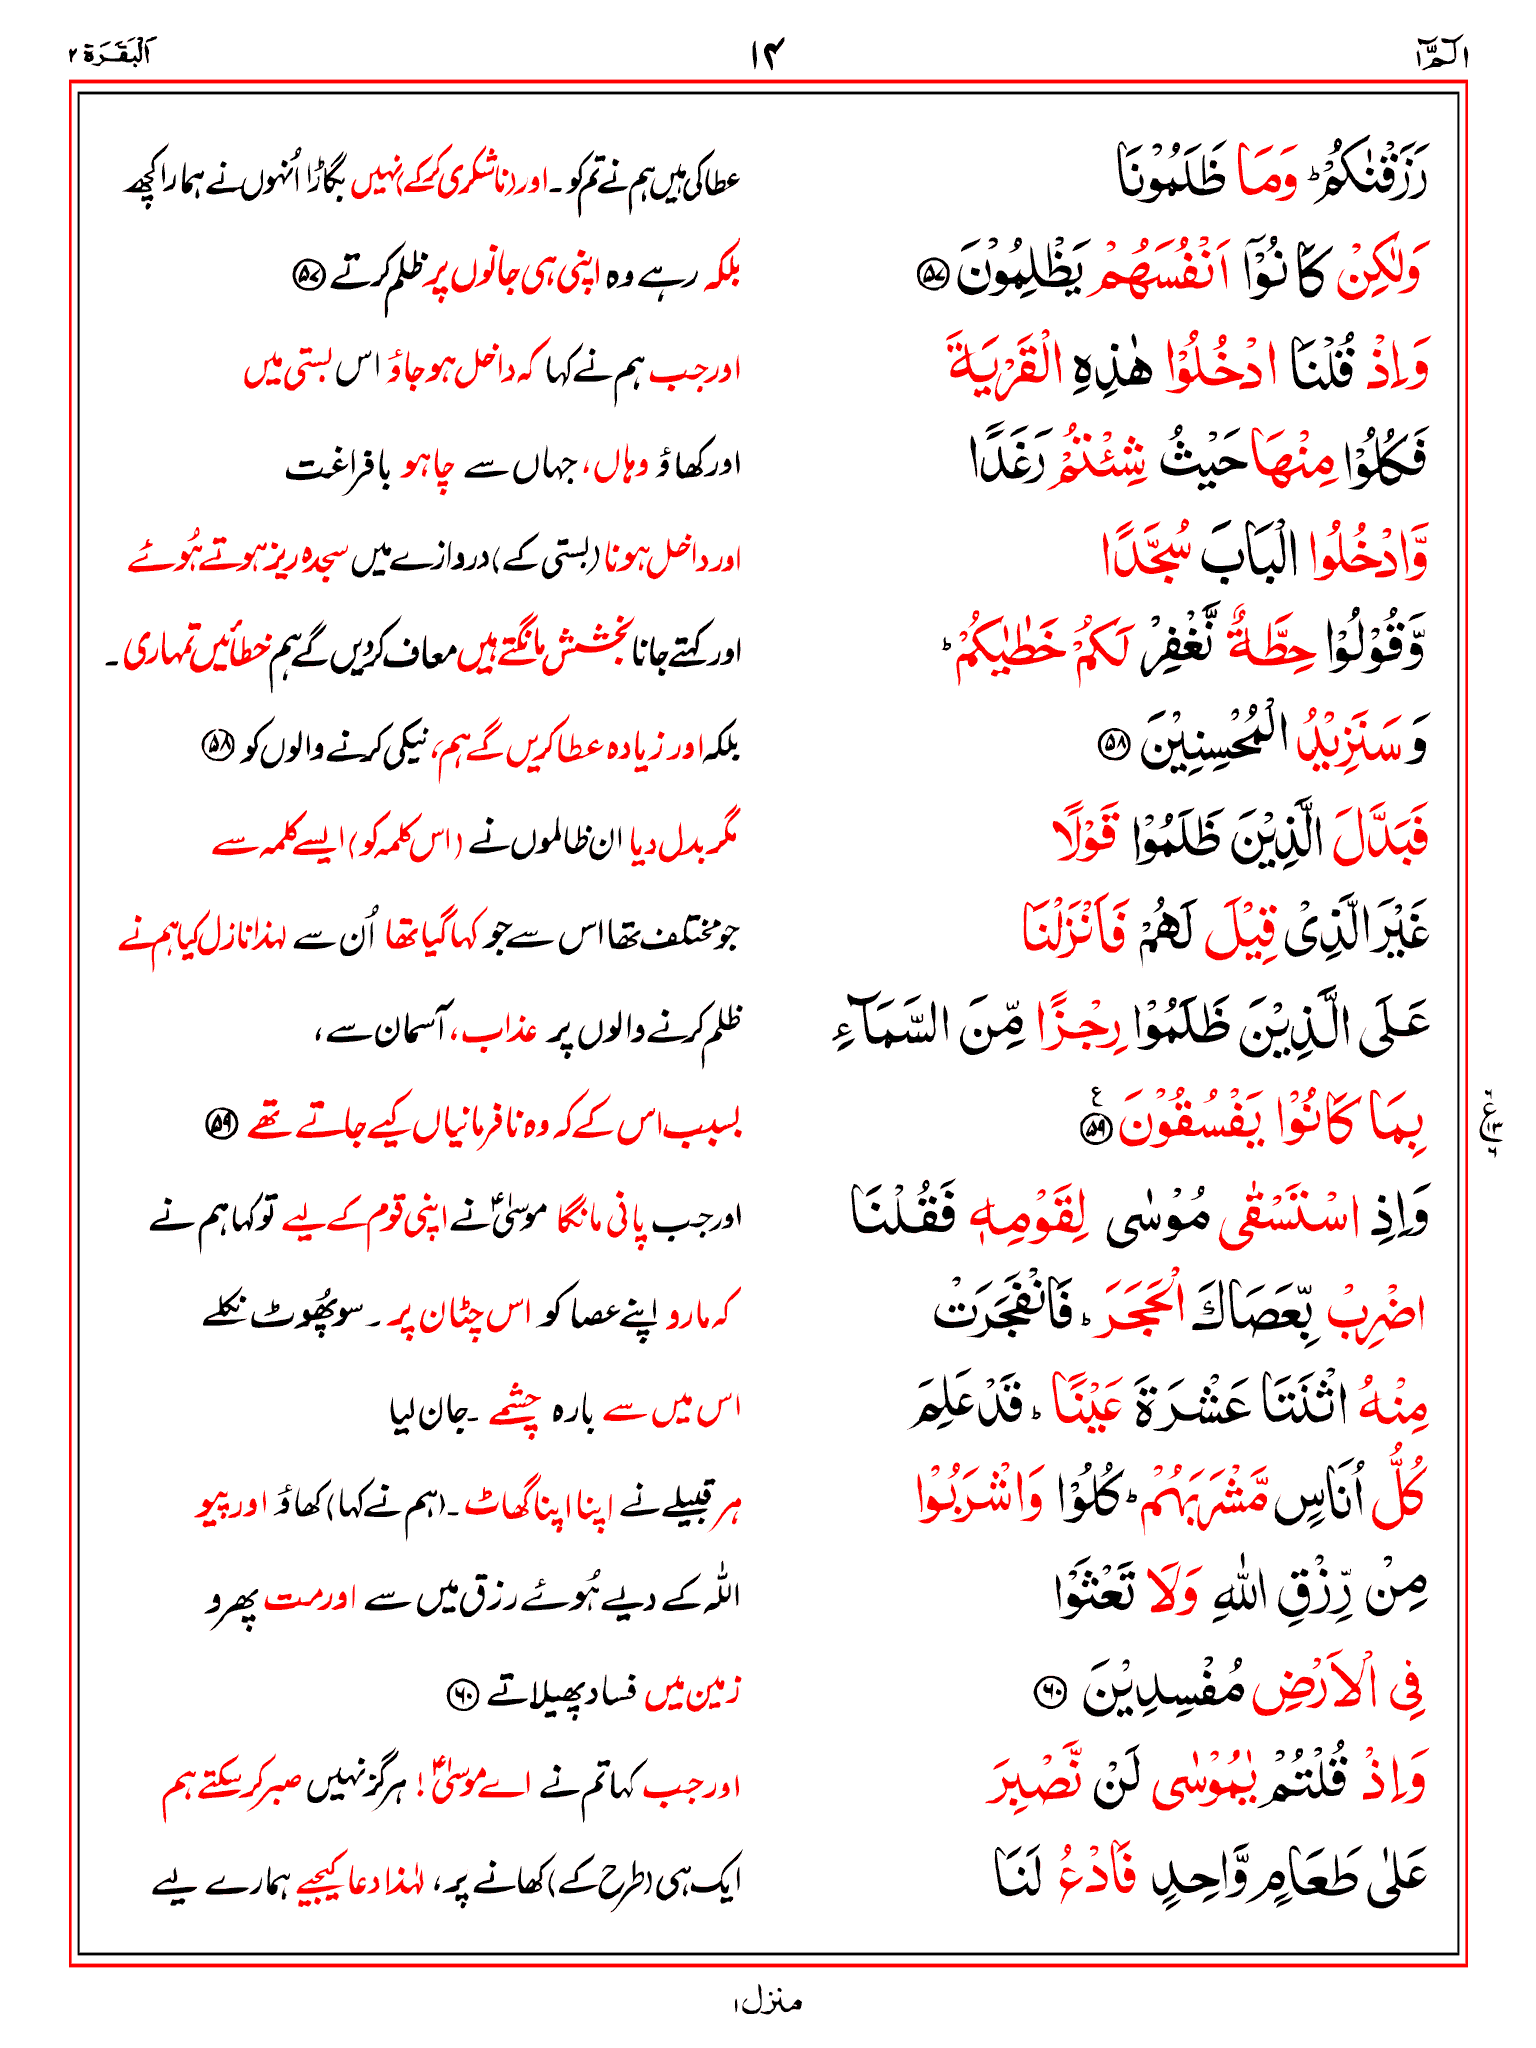 الٓمّٓ ۱ ۱۴ اَلْبَقَرَة ۲
رَزَقْنٰكُمْ ؕ وَمَا ظَلَمُوْنَا عطا کی ہیں ہم نے تم کو ۔ اور (ناشکری کرکے) نہیں بگاڑا اُنہوں نے ہمارا کچھ
وَلٰكِنْ كَانُوْۤا اَنْفُسَهُمْ يَظْلِمُوْنَ ۵۷ بلکہ رہے وہ اپنی ہی جانوں پر ظلم کرتے ۵۷
وَاِذْ قُلْنَا ادْخُلُوْا هٰذِهِ الْقَرْيَةَ اور جب ہم نے کہا کہ داخل ہو جاؤ اس بستی میں
فَكُلُوْا مِنْهَا حَيْثُ شِئْتُمْ رَغَدًا اور کھاؤ وہاں، جہاں سے چاہو بافراغت
وَّادْخُلُوا الْبَابَ سُجَّدًا اور داخل ہونا (بستی کے) دروازے میں سجدہ ریز ہوتے ہُوئے
وَّقُوْلُوْا حِطَّةٌ نَّغْفِرْ لَكُمْ خَطٰيٰكُمْ ؕ اور کہتے جانا بخشش مانگتے ہیں معاف کردیں گے ہم خطائیں تمہاری ۔
وَسَنَزِيْدُ الْمُحْسِنِيْنَ ۵۸ بلکہ اور زیادہ عطا کریں گے ہم، نیکی کرنے والوں کو ۵۸
فَبَدَّلَ الَّذِيْنَ ظَلَمُوْا قَوْلًا مگر بدل دیا ان ظالموں نے (اس کلمہ کو) ایسے کلمہ سے
غَيْرَ الَّذِىْ قِيْلَ لَهُمْ فَاَنْزَلْنَا جو مختلف تھا اس سے جو کہا گیا تھا اُن سے لہذا نازل کیا ہم نے
عَلَى الَّذِيْنَ ظَلَمُوْا رِجْزًا مِّنَ السَّمَآءِ ظلم کرنے والوں پر عذاب، آسمان سے،
بِمَا كَانُوْا يَفْسُقُوْنَ ۵۹ ع بسبب اس کے کہ وہ نافرمانیاں کیے جاتے تھے ۵۹
ع ۶ ۱۳ ۶
وَاِذِ اسْتَسْقٰى مُوْسٰى لِقَوْمِهٖ فَقُلْنَا اور جب پانی مانگا موسیٰؑ نے اپنی قوم کے لیے تو کہا ہم نے
اضْرِبْ بِّعَصَاكَ الْحَجَرَ ؕ فَانْفَجَرَتْ کہ مارو اپنے عصا کو اس چٹان پر ۔ سو پُھوٹ نکلے
مِنْهُ اثْنَتَا عَشْرَةَ عَيْنًا ؕ قَدْ عَلِمَ اس میں سے بارہ چشمے ۔ جان لیا
كُلُّ اُنَاسٍ مَّشْرَبَهُمْ ؕ كُلُوْا وَاشْرَبُوْا ہر قبیلے نے اپنا اپنا گھاٹ ۔ (ہم نے کہا) کھاؤ اور پیو
مِنْ رِّزْقِ اللّٰهِ وَلَا تَعْثَوْا اللہ کے دیے ہُوئے رزق میں سے اور مت پھرو
فِى الْاَرْضِ مُفْسِدِيْنَ ۶۰ زمین میں فساد پھیلاتے ۶۰
وَاِذْ قُلْتُمْ يٰمُوْسٰى لَنْ نَّصْبِرَ اور جب کہا تم نے اے موسیٰؑ! ہرگز نہیں صبر کرسکتے ہم
عَلٰى طَعَامٍ وَّاحِدٍ فَادْعُ لَنَا ایک ہی (طرح کے) کھانے پر، لہٰذا دعا کیجیے ہمارے لیے
منزل ۱